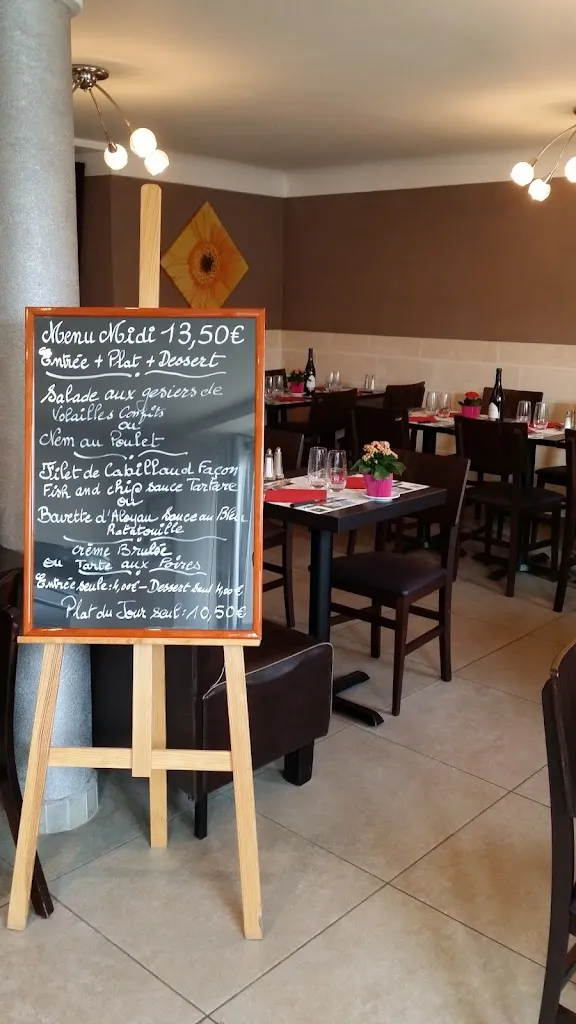 Menu Midi 13,50€
Entrée + Plat + Dessert
Salade aux gesiers de
Volailles Confits
ou
Nem au Poulet
Filet de Cabillaud Façon
Fish and chip sauce Tartare
ou
Bavette d'Aloyau sauce au Bleu
Ratatouille
crème Brulée
ou Tarte aux Poires
Entrée seule: 4,00€ - Dessert seul 4,00€
Plat du Jour seul: 10,50€